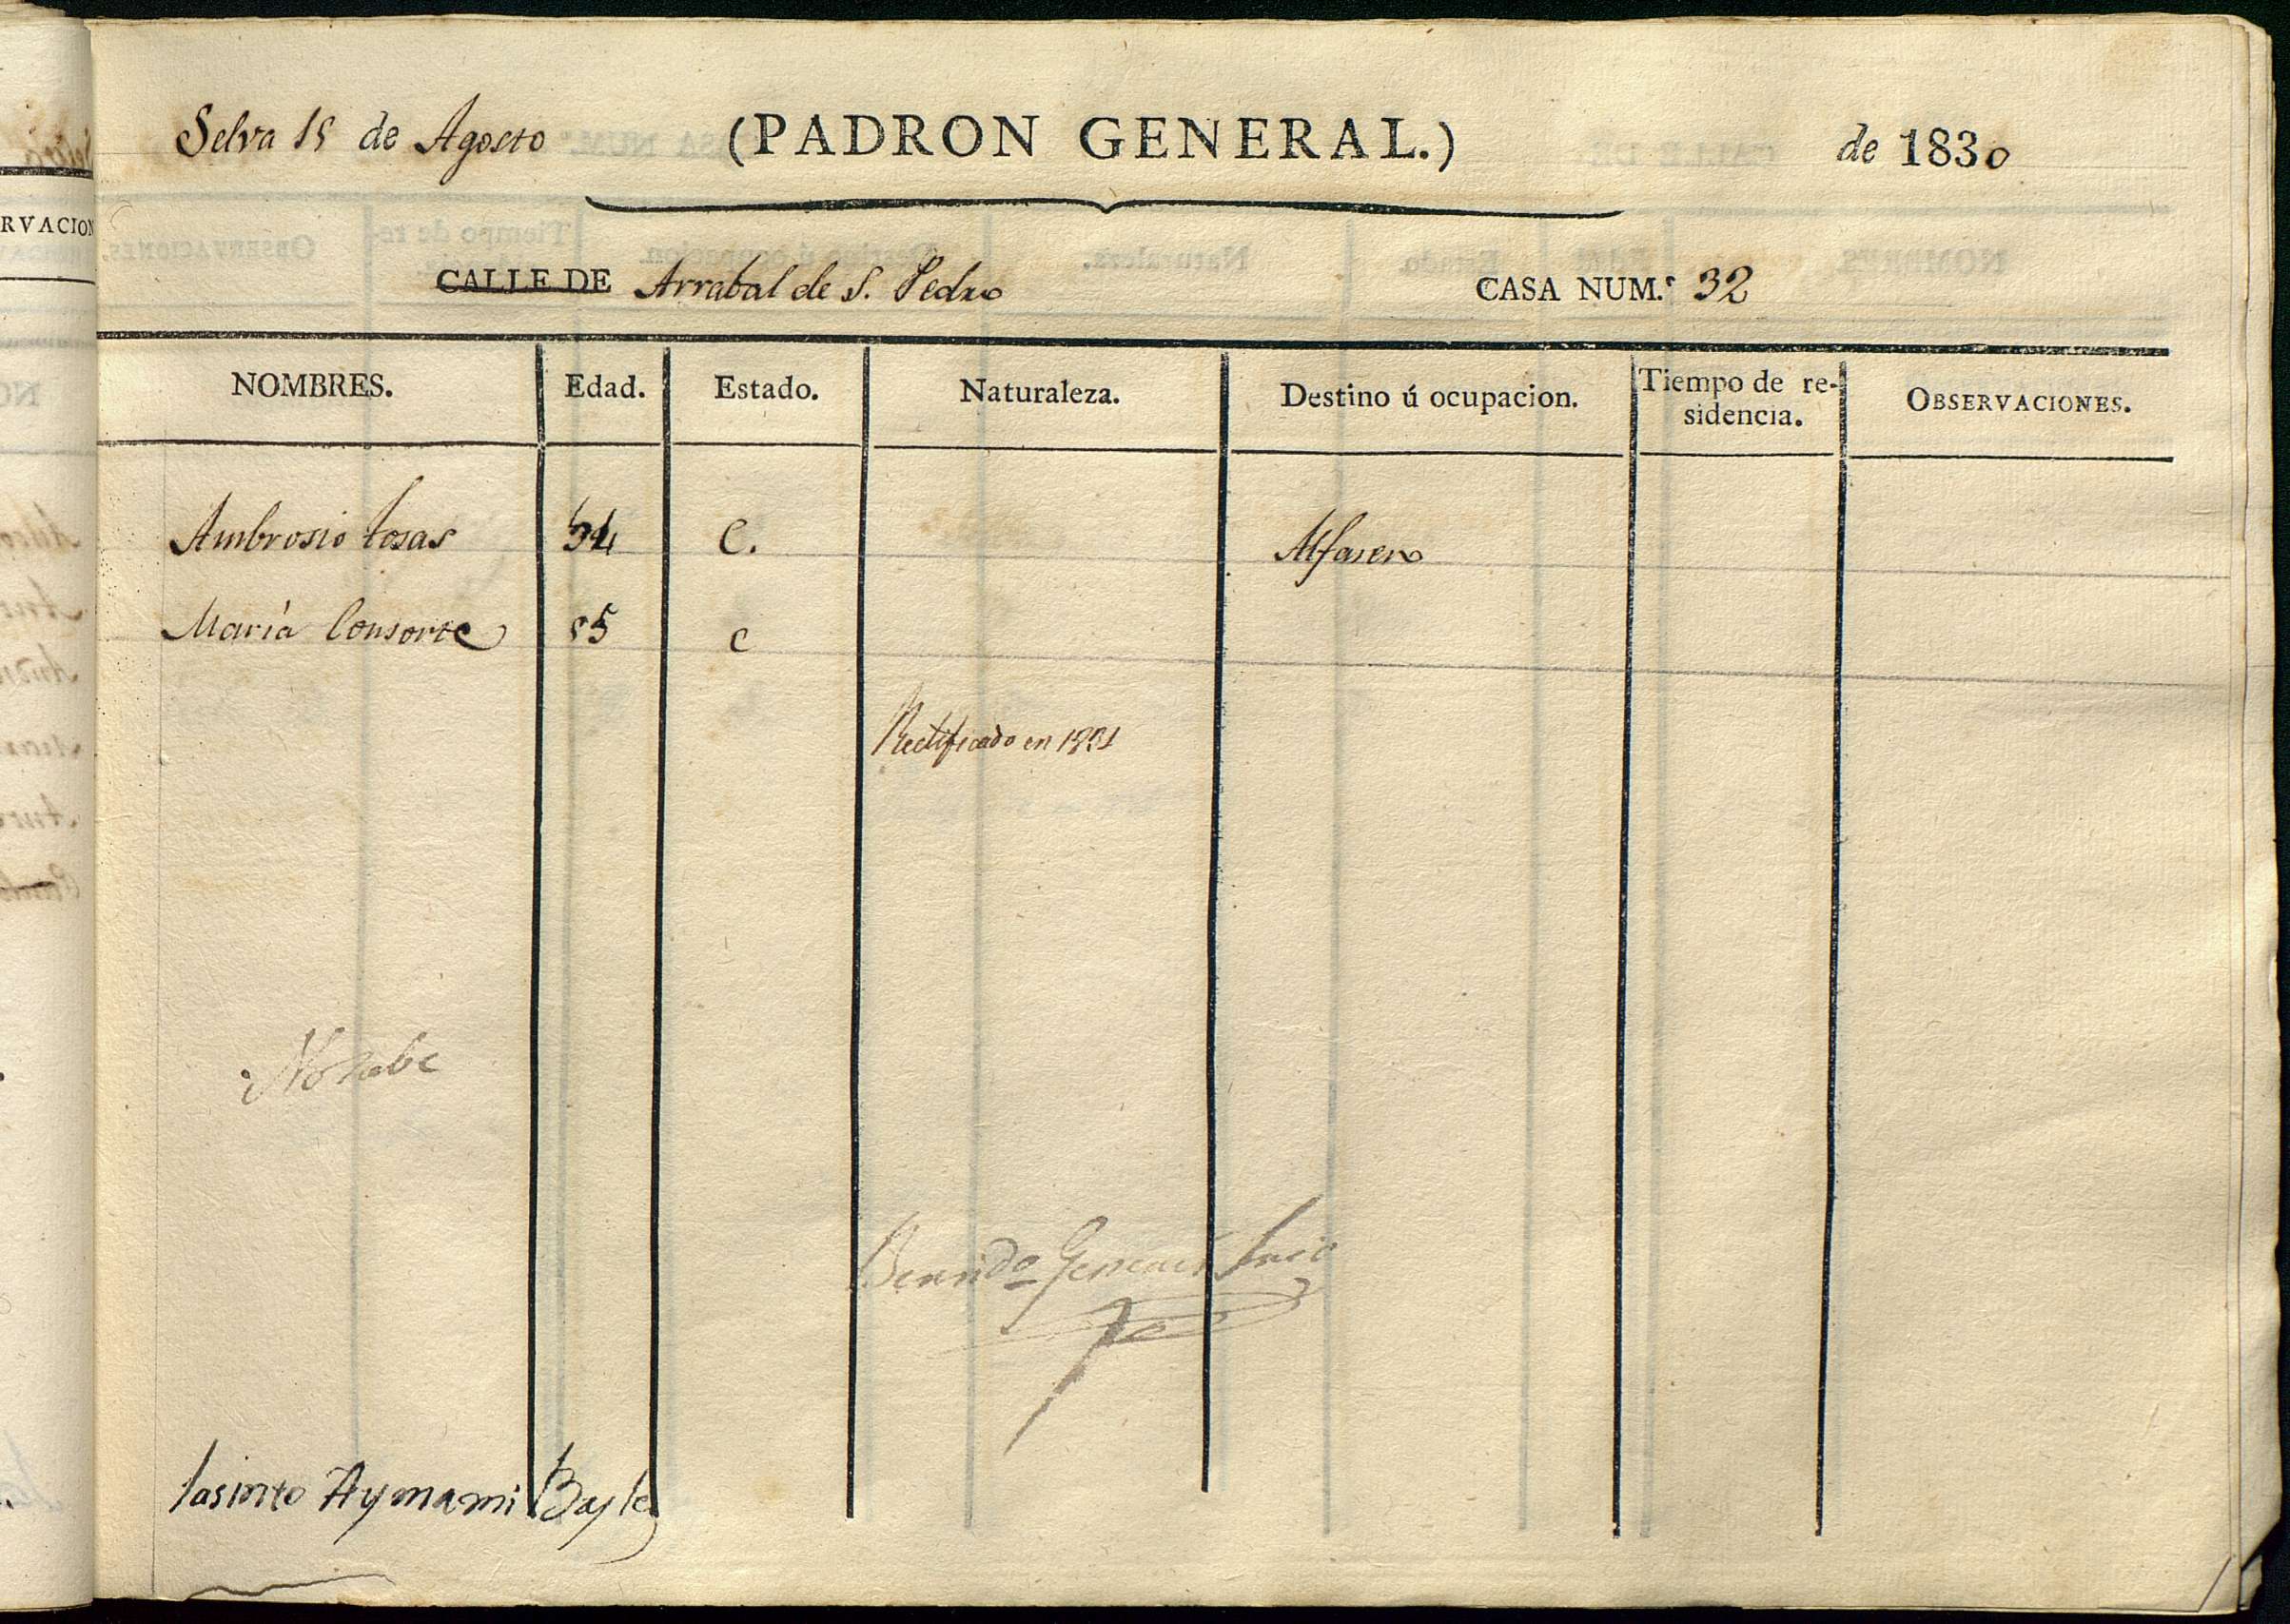 Selva 15 de Agosto (PADRON GENERAL.) de 1830
CALLE DE Arrabal de S. Pedro CASA NUM.º 32
NOMBRES. Edad. Estado. Naturaleza. Destino ú ocupacion. Tiempo de re-
sidencia. OBSERVACIONES.
Ambrosio C.
María Consorte 55 c
Alfarero
Rectificado en 1831
No sabe
Jasinto Aymami Bayle